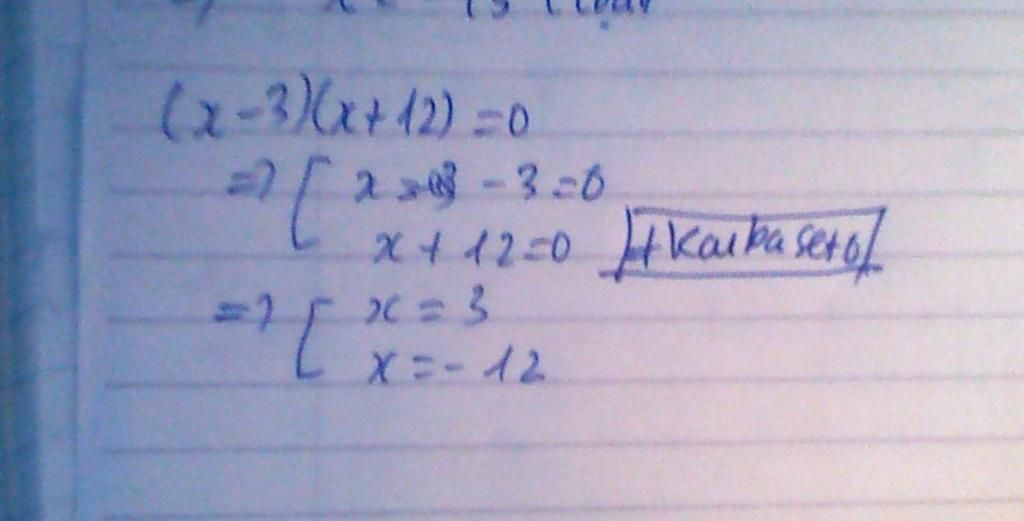 (x-3)(x+12)=0
=> [ x - 3 = 0
x + 12 = 0 +Kaibaseto
=> [ x = 3
x = - 12